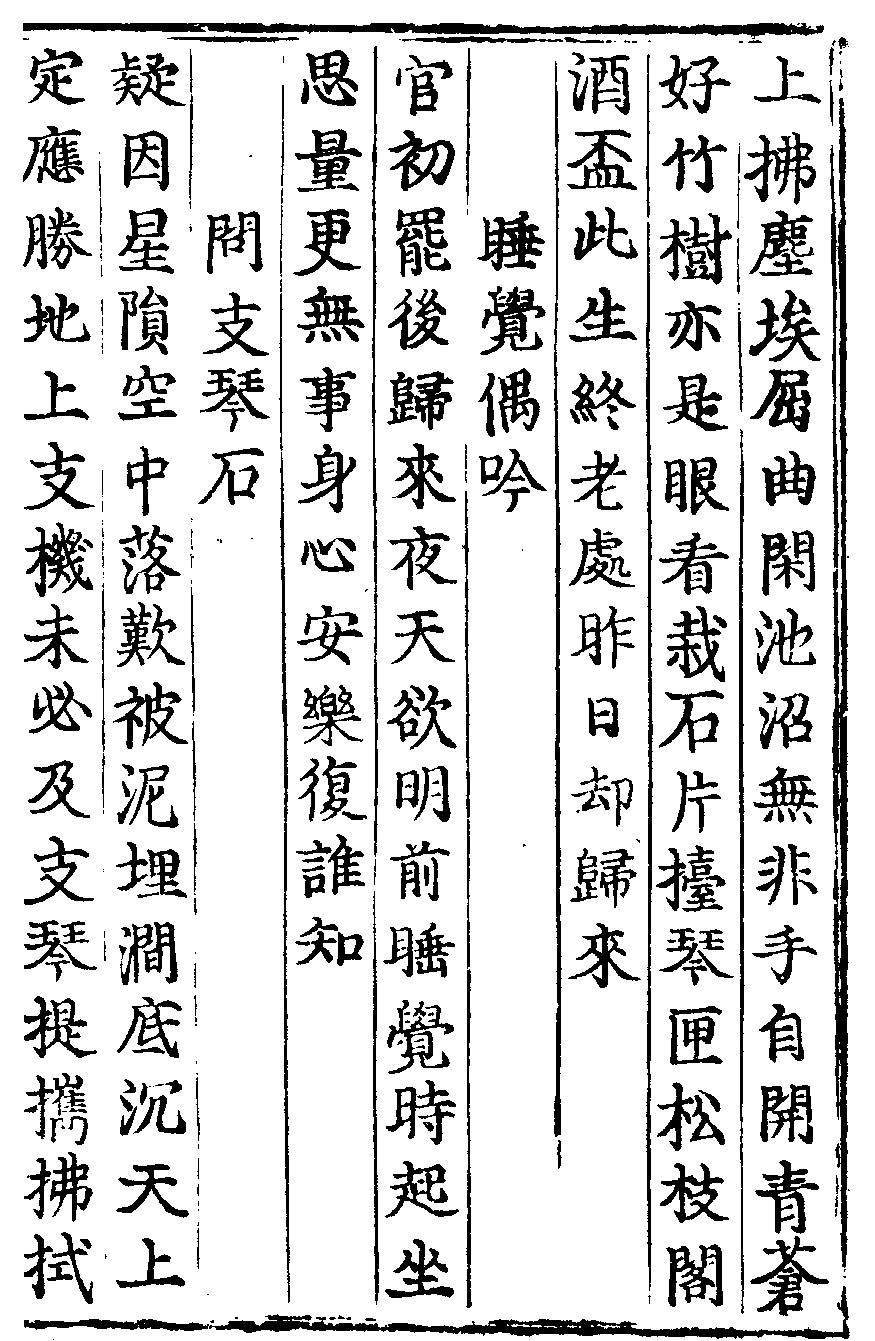 上拂塵埃屈曲閑池沼無非手自開青蒼
好竹樹亦是眼看栽石片擡琴匣松枝閣
酒盃此生終老處昨日却歸來
睡覺偶吟
官初罷後歸來夜天欲明前睡覺時起坐
思量更無事身心安樂復誰知
問支琴石
疑因星隕空中落歎被泥埋澗底沉天上
定應勝地上支機未必及支琴提攜拂拭